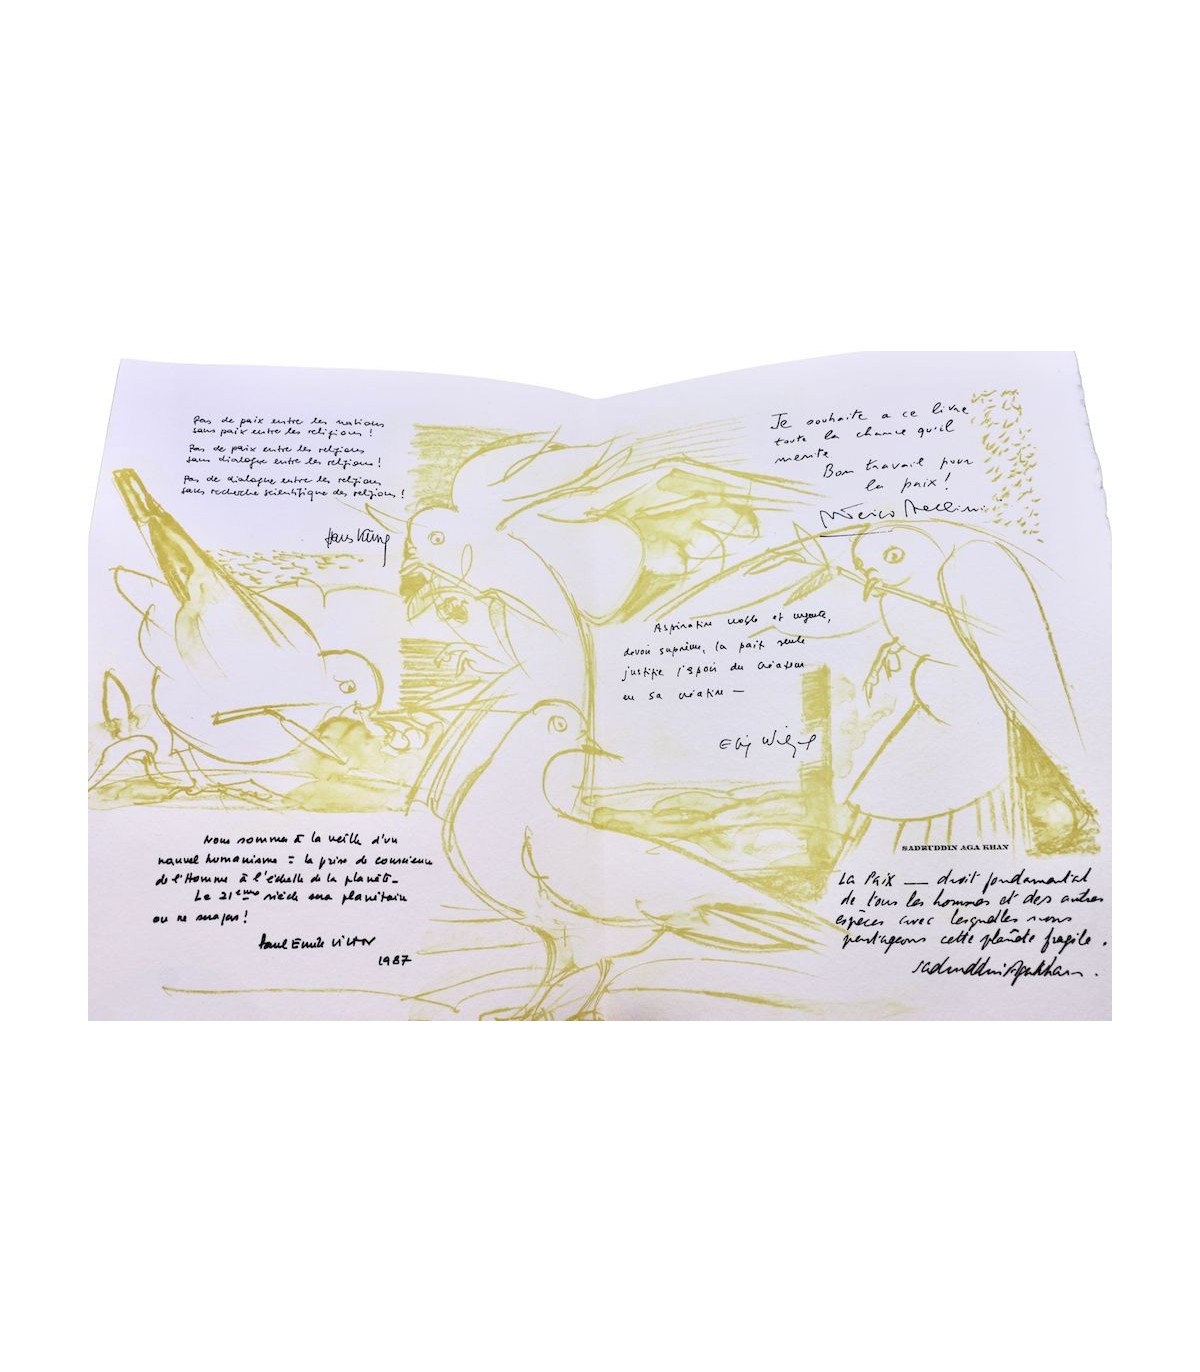 Pas de paix entre les nations
sans paix entre les religions !
Pas de paix entre les religions
sans dialogue entre les religions !
Pas de dialogue entre les religions
sans recherche scientifique des religions !
Hans Küng
Je souhaite a ce livre
toute la chance qu'il
merite
Bon travail pour
la paix !
Aspiration noble et urgente,
devoir suprême, la paix seule
justifie l'espoir du créateur
en sa création —
Elie Wiesel
Nous sommes à la veille d'un
nouvel humanisme = la prise de conscience
de l'Homme à l'échelle de la planète_
Le 21ème siècle sera planétaire
ou ne sera pas !
Paul Emile VICTOR
1987
SADRUDDIN AGA KHAN
La Paix — droit fondamental
de tous les hommes et des autres
espèces avec lesquelles nous
partageons cette planète fragile .
Sadruddin Aga Khan .